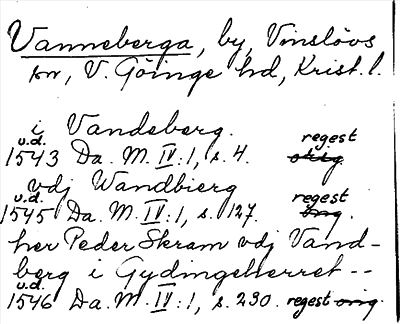 Vanneberga, by, Vinslövs
sn, V. Göinge hd, Krist. l.
i Vandeberg.
u.d. regest
1543 Da. M. IV:1, s. 4. orig.
vdj Wandbierg
u.d. regest
1545 Da. M. IV:1, s. 127. orig.
her Peder Skram vdj Vand-
berg i Gydingeherret --
u.d.
1546 Da. M. IV:1, s. 230. regest orig.